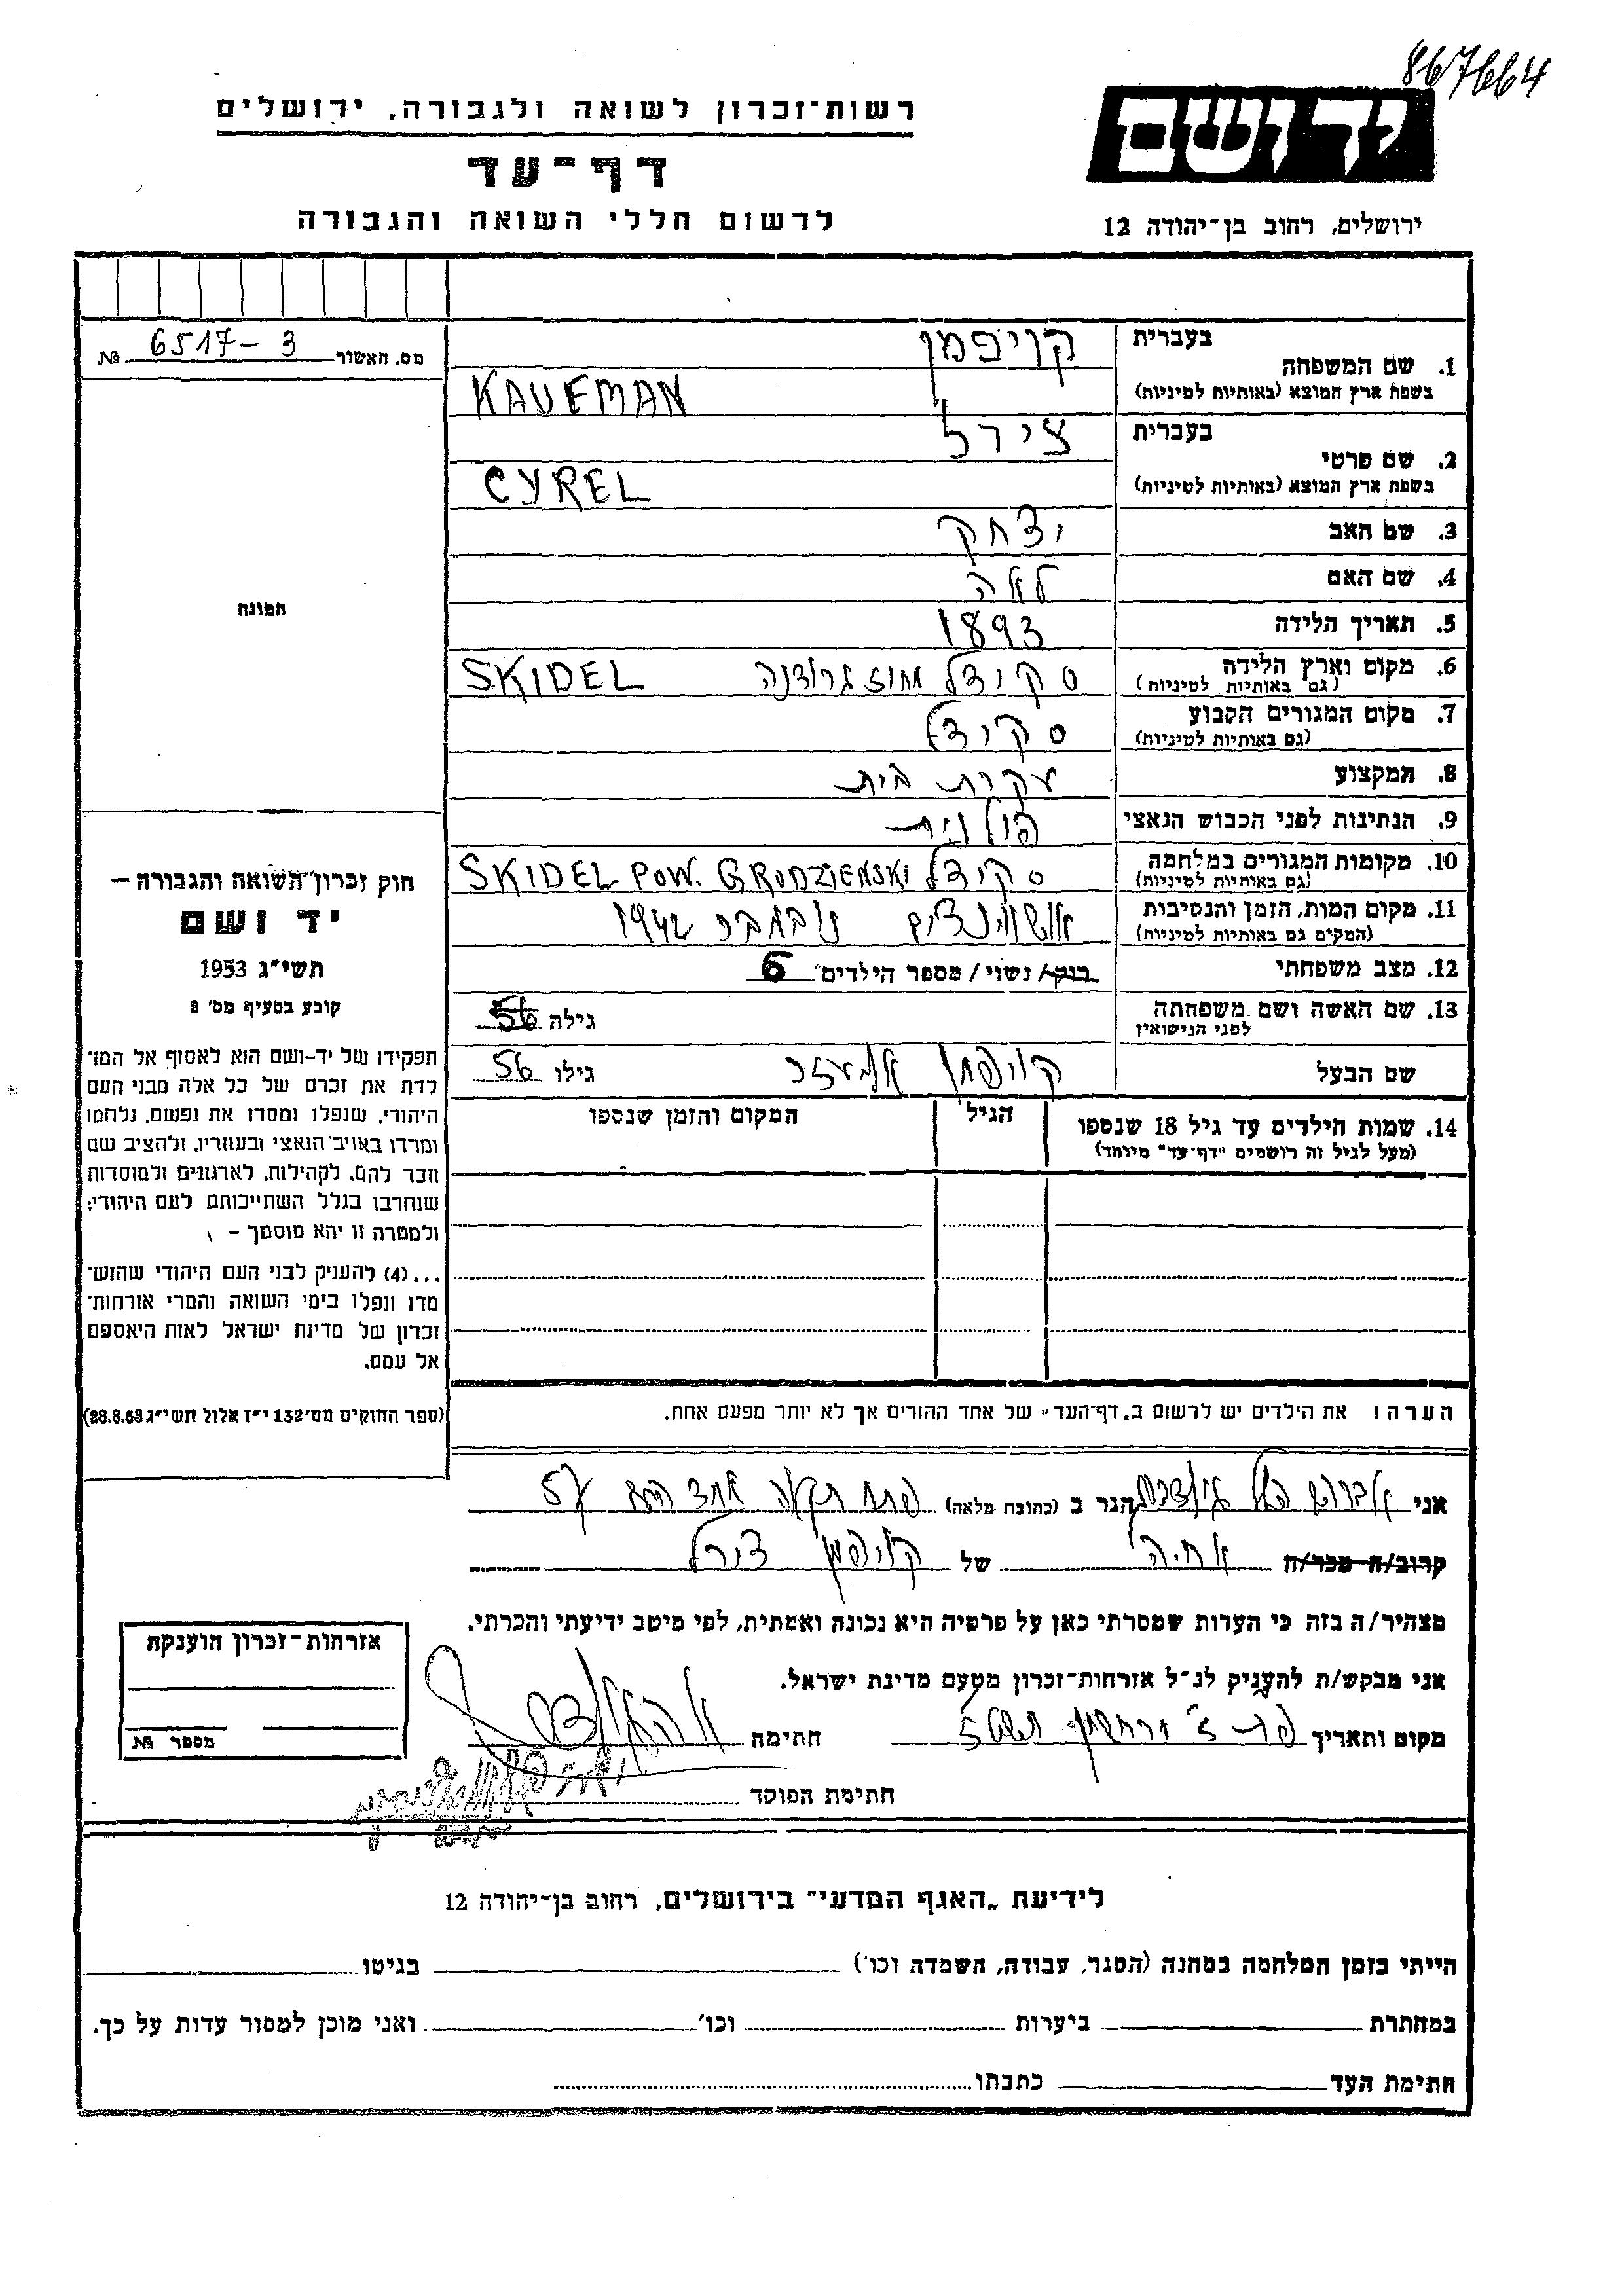 867664
יד ושם
רשות־זכרון לשואה ולגבורה, ירושלים
דף־עד
לרשום חללי השואה והגבורה
ירושלים, רחוב בן־יהודה 12
מס. האשור 6517-3 №
1. שם המשפחה בעברית קויפמן
בשפת ארץ המוצא (באותיות לטיניות) KAUFMAN
2. שם פרטי בעברית צירל
בשפת ארץ המוצא (באותיות לטיניות) CYREL
3. שם האב יצחק
4. שם האם לאה
5. תאריך הלידה 1893
6. מקום וארץ הלידה (גם באותיות לטיניות) סקידל מחוז גרודנה SKIDEL
7. מקום המגורים הקבוע (גם באותיות לטיניות) סקידל
8. המקצוע עקרת בית
9. הנתינות לפני הכבוש הנאצי פולנית
10. מקומות המגורים במלחמה (גם באותיות לטיניות) סקידל SKIDEL POW. GRODZIENSKI
11. מקום המות, הזמן והנסיבות (המקום גם באותיות לטיניות) נובמבר 1942
12. מצב משפחתי רוק/ נשוי/ מספר הילדים 6
13. שם האשה ושם משפחתה לפני הנישואין גילה 56
שם הבעל קויפמן אליעזר גילו 56
14. שמות הילדים עד גיל 18 שנספו הגיל המקום והזמן שנספו
(מעל לגיל זה רושמים "דף־עד" מיוחד)
הערה: את הילדים יש לרשום ב„דף־העד" של אחד ההורים אך לא יותר מפעם אחת.
תמונה
חוק זכרון־השואה והגבורה —
יד ושם
תשי"ג 1953
קובע בסעיף מס' 2
תפקידו של יד-ושם הוא לאסוף אל המו־
לדת את זכרם של כל אלה מבני העם
היהודי, שנפלו ומסרו את נפשם, נלחמו
ומרדו באויב הנאצי ובעוזריו, ולהציב שם
וזכר להם, לקהילות, לארגונים ולמוסדות
שנחרבו בגלל השתייכותם לעם היהודי;
ולמטרה זו יהא מוסמך —
...(4) להעניק לבני העם היהודי שהוש־
מדו ונפלו בימי השואה והמרי אזרחות־
זכרון של מדינת ישראל לאות היאספם
אל עמם.
(ספר החוקים מס' 132 י"ז אלול תשי"ג 28.8.53)
אני אברהם הגר ב (כתובת מלאה) פתח תקוה אחד העם 57
קרוב/ה מכר/ה אחיה של קויפמן צירל
מצהיר/ה בזה כי העדות שמסרתי כאן על פרטיה היא נכונה ואמתית, לפי מיטב ידיעתי והכרתי.
אני מבקש/ת להעניק לנ"ל אזרחות־זכרון מטעם מדינת ישראל.
מקום ותאריך חתימה
חתימת הפוקד
אזרחות־זכרון הוענקה
מספר №
לידיעת „האגף המדעי" בירושלים, רחוב בן־יהודה 12
הייתי בזמן המלחמה במחנה (הסגר, עבודה, השמדה וכו') בגיטו
במחתרת ביערות וכו' ואני מוכן למסור עדות על כך.
חתימת העד כתבתו